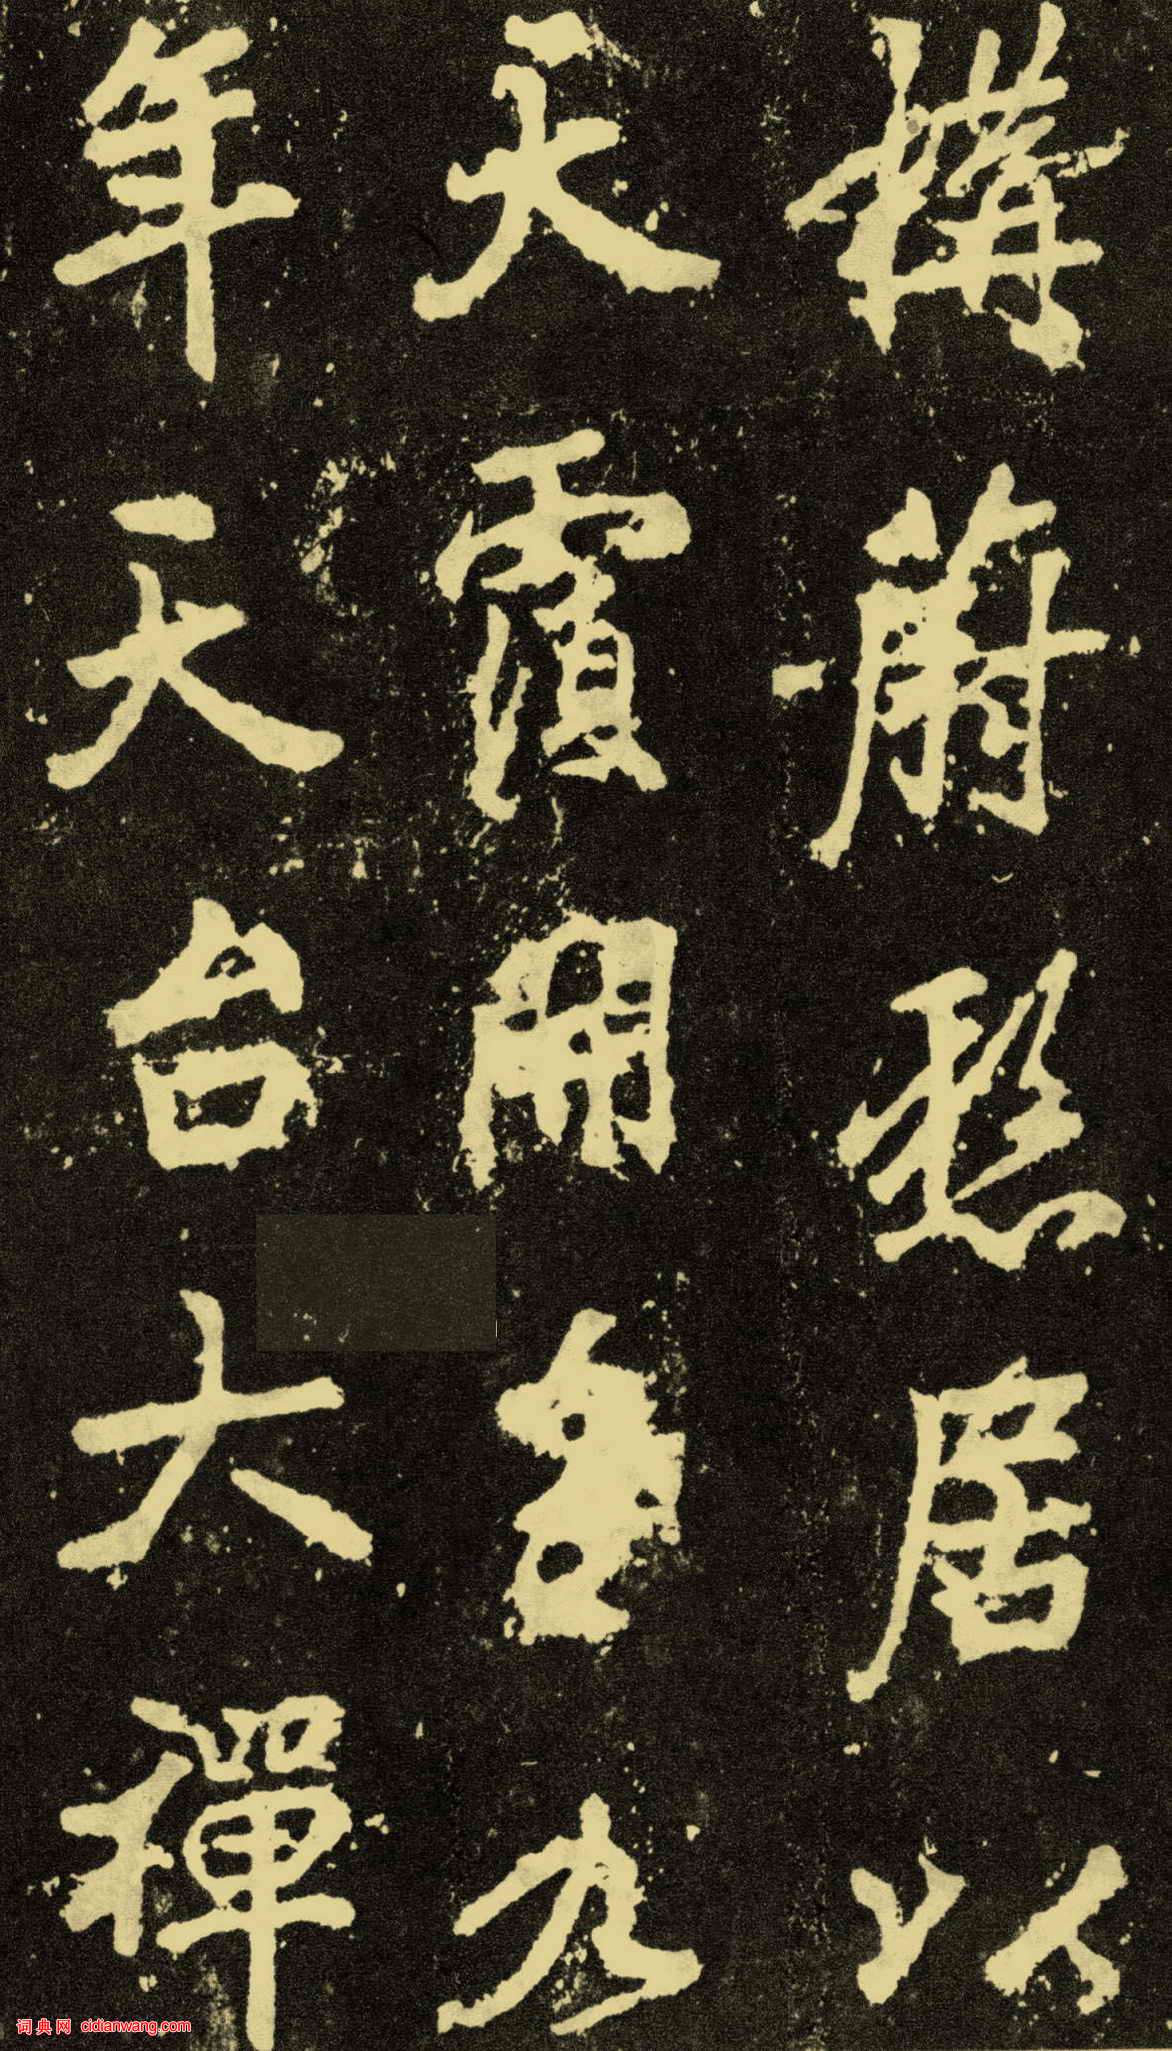 搆蔚居以
天覆開皇九
年天台大禪
词典网 cidianwang.com